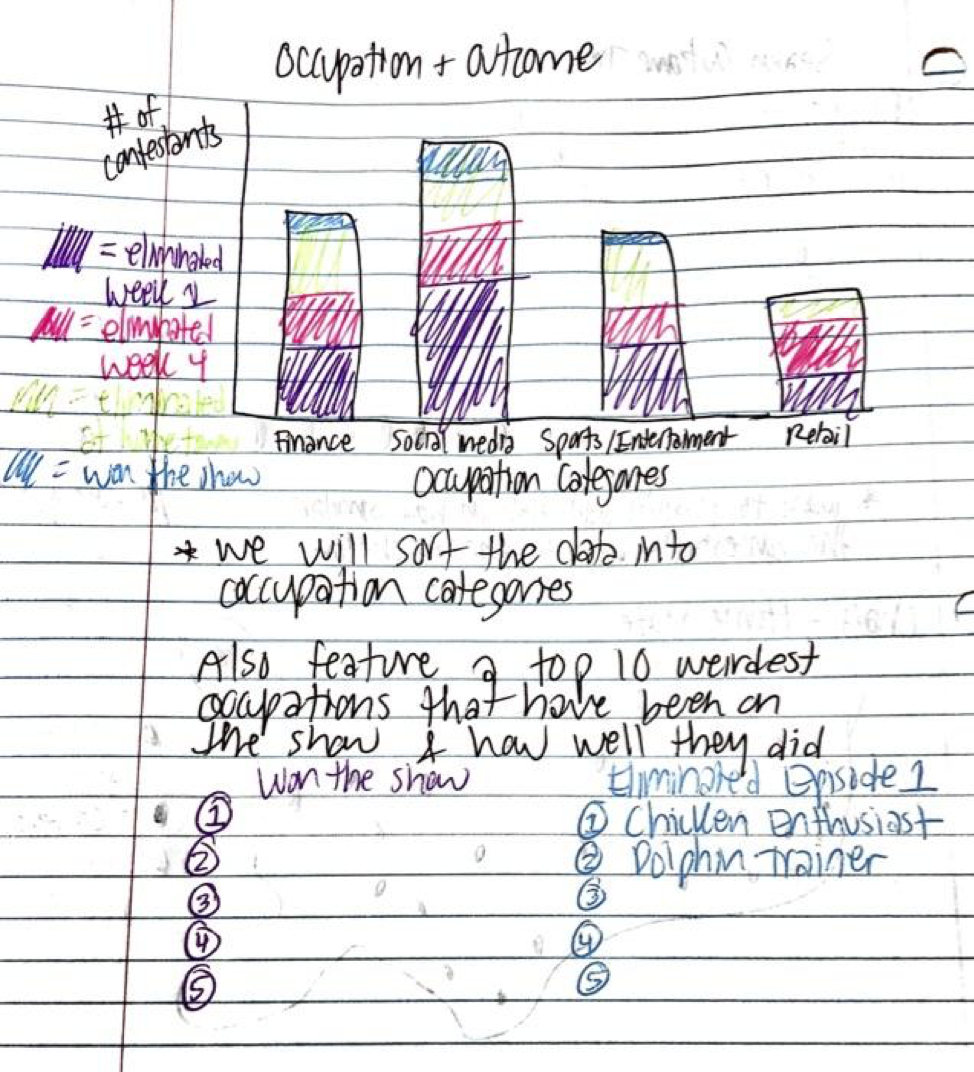 Occupation + Outcome
# of
contestants
= eliminated
week 1
= eliminated
week 4
= eliminated
at hometown
= won the show
Finance Social media Sports/Entertainment Retail
Occupation Categories
* we will sort the data into
occupation categories
Also feature a top 10 weirdest
occupations that have been on
the show & how well they did
Won the show Eliminated Episode 1
① ① Chicken Enthusiast
② ② Dolphin trainer
③ ③
④ ④
⑤ ⑤